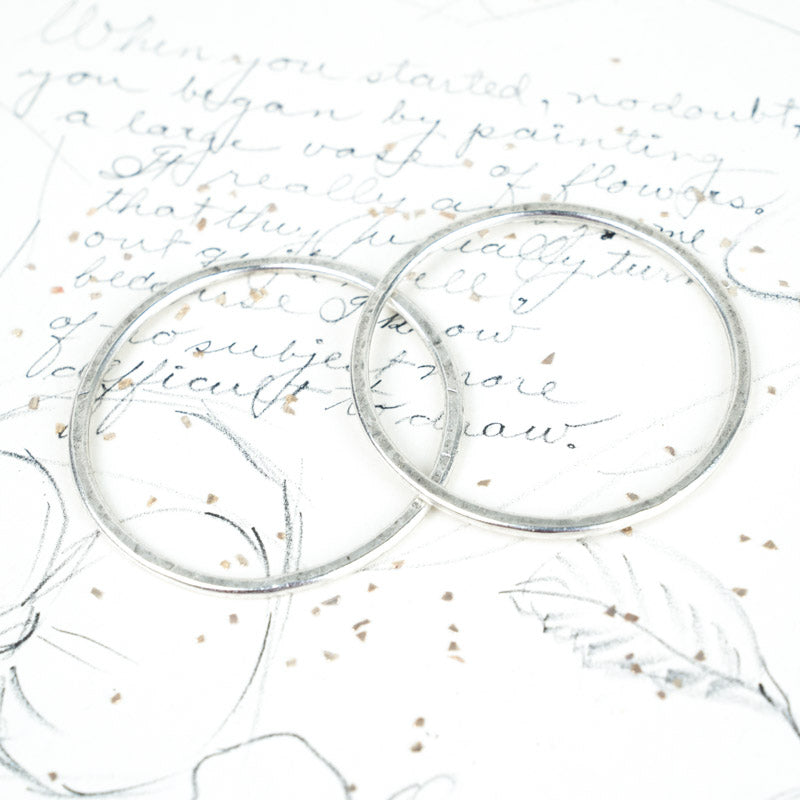 When you started, no doubt,
you began by painting
a large vase of flowers.
It really a me
that they ually tur
out q ell,
because I know
of no subject more
difficult to draw.